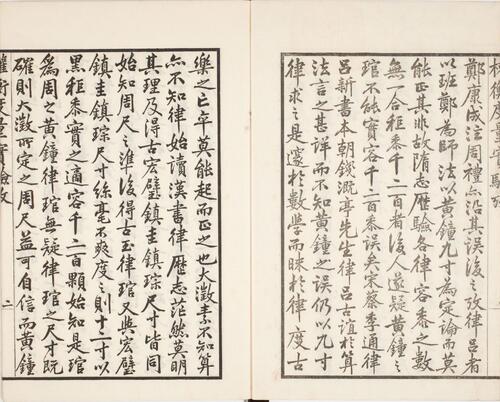 權衡度量實驗攷
鄭康成注周禮亦沿其誤後之攷律呂者
以班鄭為師法以黃鐘九寸為定論而莫
能正其非故隋志歷驗各律容黍之數
無一合秬黍千二百者後人遂疑黃鐘之
琯不能實容千二百黍誤矣宋蔡季通律
呂新書本朝錢溉亭先生律呂古誼於算
法言之甚詳而不知黃鐘之誤仍以九寸
律求之是邃於數學而昧於律度古
樂之亡卒莫能起而正之也大澂素不知算
亦不知律始讀漢書律歷志茫然莫明
其理及得古宏璧鎮圭鎮琮尺寸皆同
始知周尺之準後得古玉律琯又與宏璧
鎮圭鎮琮尺寸絲毫不爽度之則十二寸以
黑秬黍實之適容千二百顆始知是琯
為周之黃鐘律琯無疑律琯之尺寸既
確則大澂所定之周尺益可自信而黃鐘
權衡度量實驗攷
二